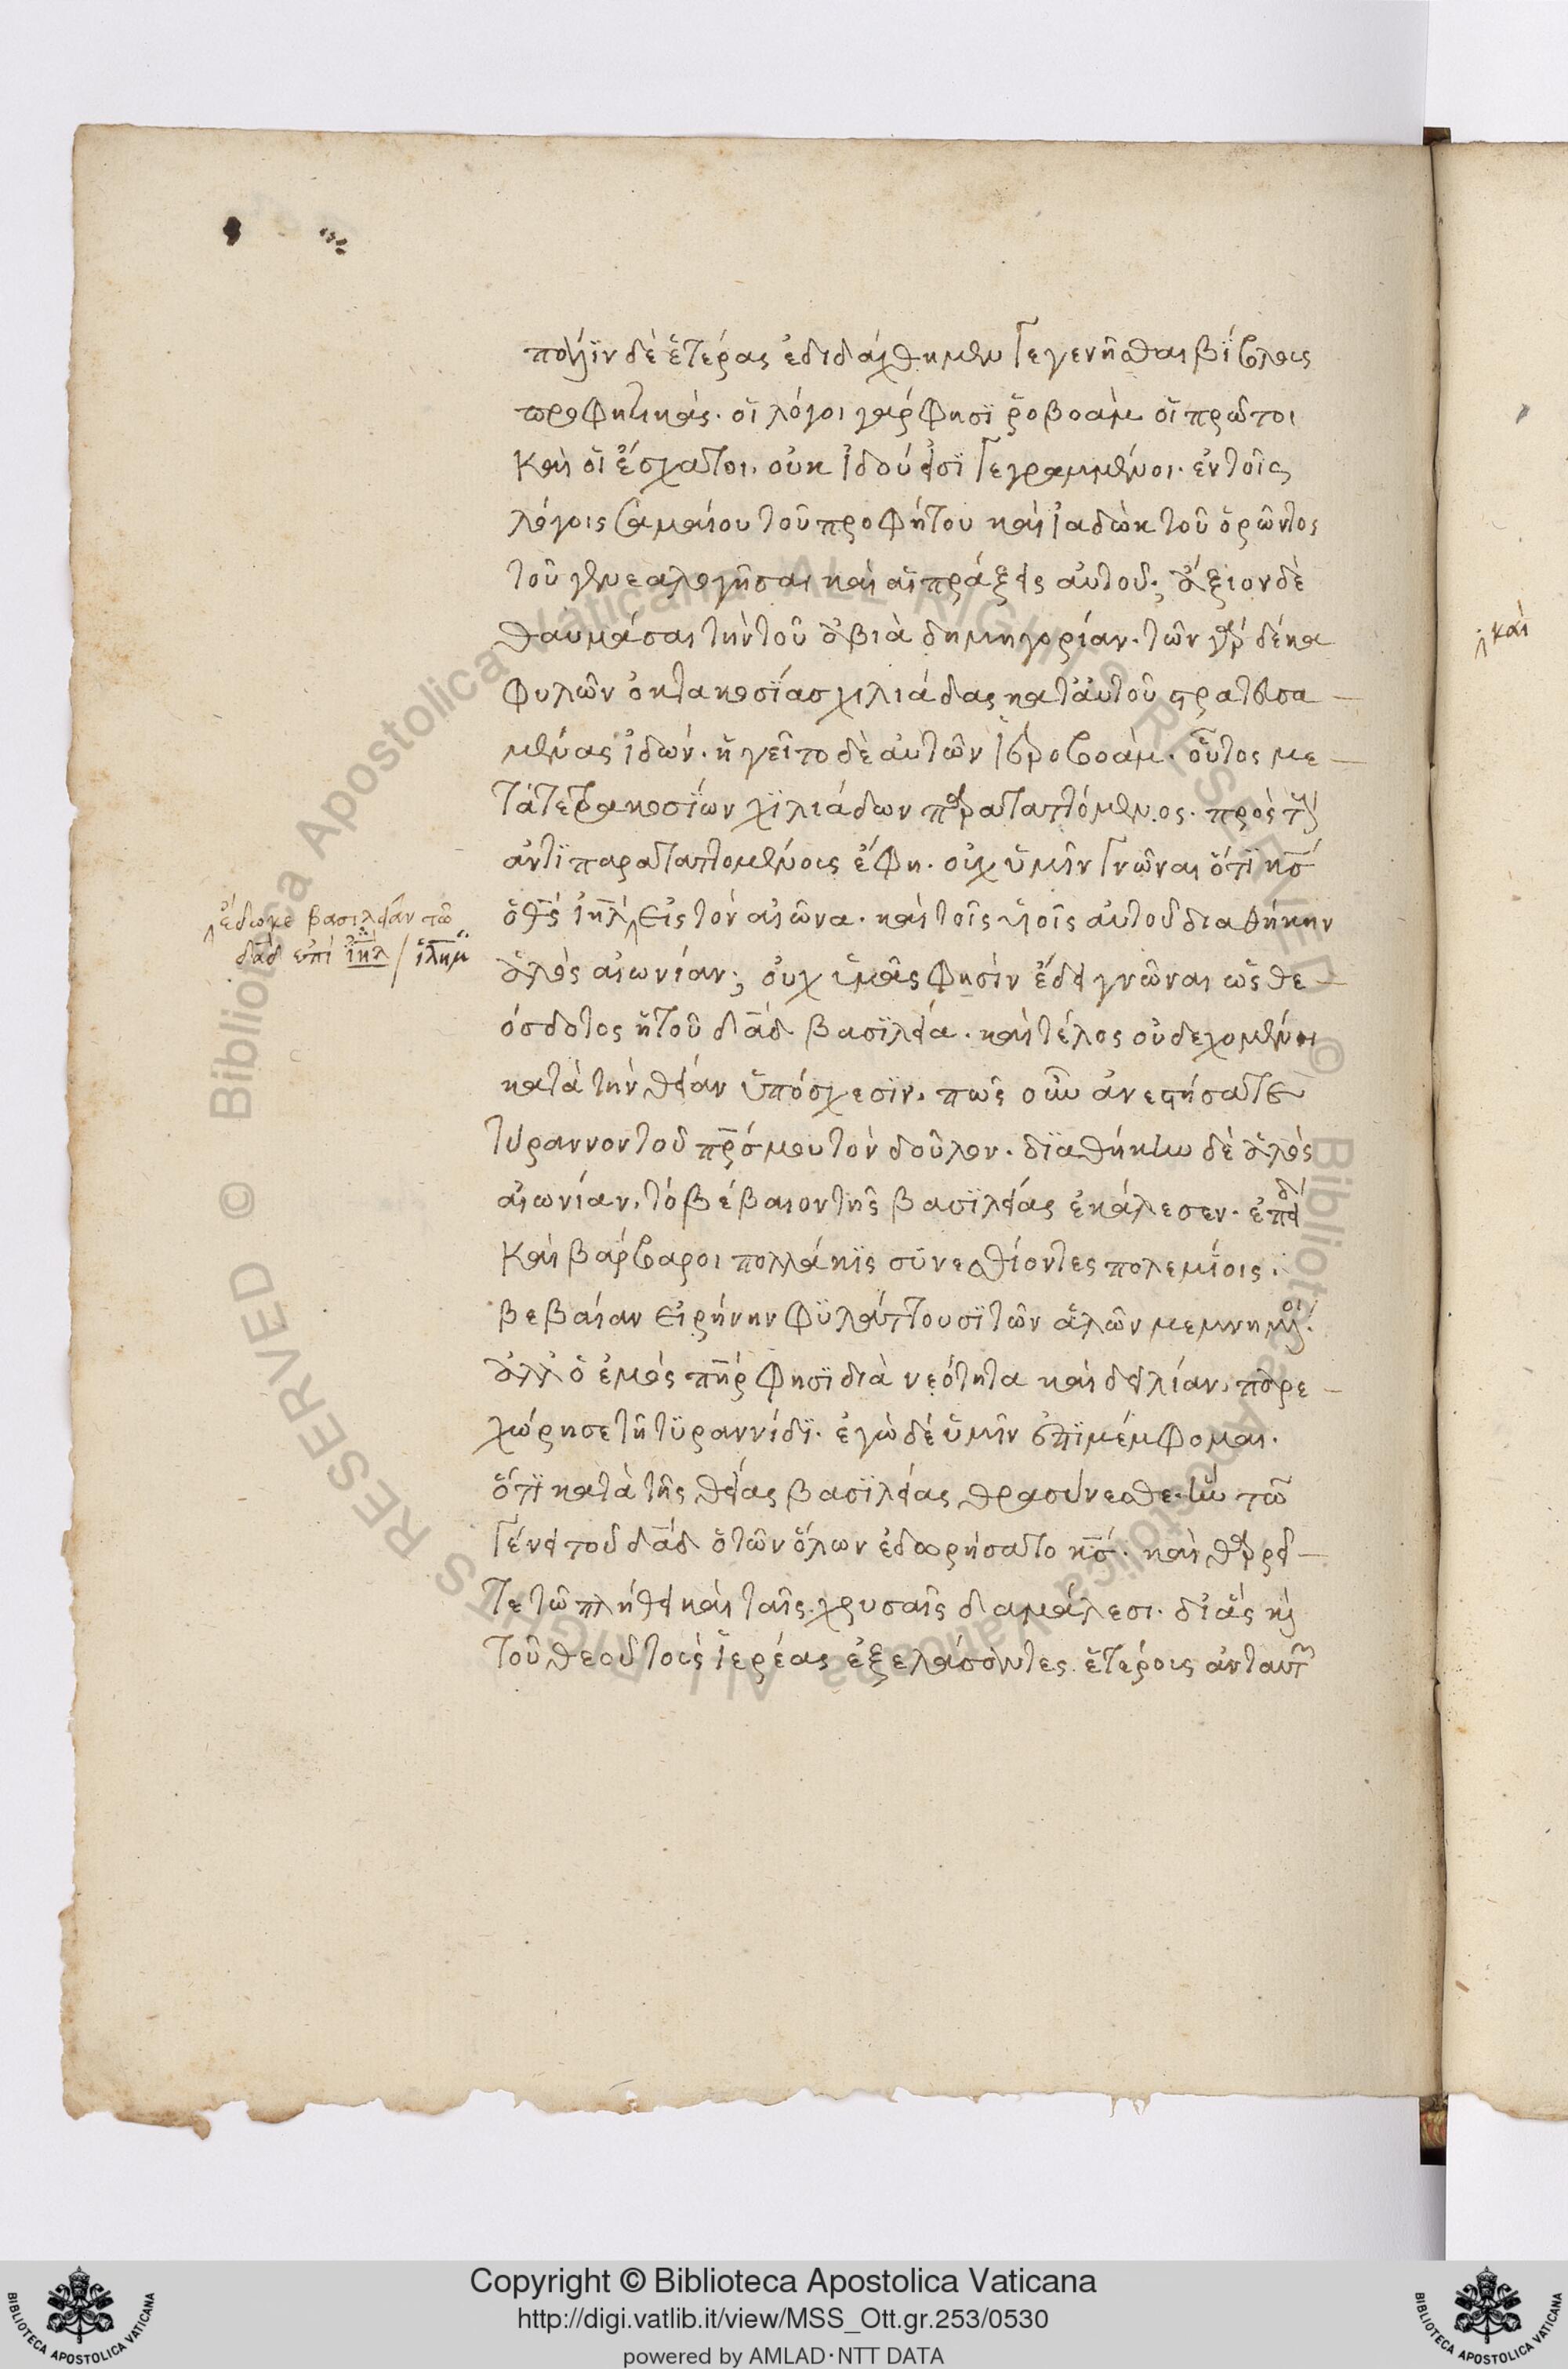 πάλιν δὲ ἑτέρας ἐδιδάχθημεν γεγενῆσθαι βίβλους
προφητικάς· οἱ λόγοι γάρ φησϊ ῥοβοὰμ οἱ πρῶτοι
καὶ οἱ ἔσχατοι, οὐκ ἰδού εἰσϊ γεγραμμένοι· ἐν τοῖς
λόγοις σαμαίου τοῦ προφήτου καὶ ἰαδὼκ τοῦ ὁρῶντος
τοῦ γενεαλογῆσαι καὶ αἱ πράξεις αὐτοῦ; ἄξιον δὲ
θαυμάσαι τὴν τοῦ ἀβιὰ δημηγορίαν· τῶν γὰρ δέκα
φυλῶν ὀκτακοσίας χιλιάδας κατ' αὐτοῦ στρατευσα
μένας ἰδών· ἡγεῖτο δὲ αὐτῶν ἱεροβοάμ· οὗτος με
τὰ τετρακοσίων χϊλιάδων παραταττόμενος· πρὸς τοὺς
ἀντϊπαραταττομένους ἔφη· οὐχ ὑμῖν γνῶναι ὅτϊ κς
ὁ θς ἰηλ εἰς τὸν αἰῶνα· καὶ τοῖς υἱοῖς αὐτοῦ διαθήκην
ἔδωκε βασιλείαν τῶ
δαδ ἐπὶ ἰηλ / ἰλημ
ἁλὸς αἰωνίαν; οὐχ ὑμᾶς φησὶν ἔδει γνῶναι ὡς θε
όσδοτος ἡ τοῦ δαδ βασϊλεία· καὶ τέλος οὐ δεχομένη
κατὰ τὴν θείαν ὑπόσχεσϊν· πῶς οὖν ἀνεστήσατε
τύραννον τοῦ πρσ μου τὸν δοῦλον· δϊαθήκην δὲ ἁλὸς
αἰωνίαν, τὸ βέβαιον τῆς βασϊλείας ἐκάλεσεν· ἐπειδὴ
καὶ βάρβαροι πολλάκϊς συνεσθίοντες πολεμίοις·
βεβαίαν εἰρήνην φϋλάττουσϊ τῶν ἁλῶν μεμνημένοι·
ἀλλ' ὁ ἐμὸς πηρ φησϊ διὰ νεότητα καὶ δειλίαν, παρε
χώρησε τῆ τϋραννίδϊ· ἐγὼ δὲ ὑμῖν ἐπϊμέμφομαι·
ὅτϊ κατὰ τῆς θείας βασϊλείας θρασύνεσθε· ἣν τῶ
γένει τοῦ δαδ ὁ τῶν ὅλων ἐδωρήσατο κς· καὶ θαρρεῖ
τε τῶ πλήθει καὶ ταῖς χρυσαῖς δαμάλεσι· δι' ἃς καὶ
τοῦ θεοῦ τοὺς ἱερέας ἐξελάσαντες ἑτέρους ἀντ' αὐτῶν
καὶ
Copyright © Biblioteca Apostolica Vaticana
http://digi.vatlib.it/view/MSS_Ott.gr.253/0530
powered by AMLAD·NTT DATA